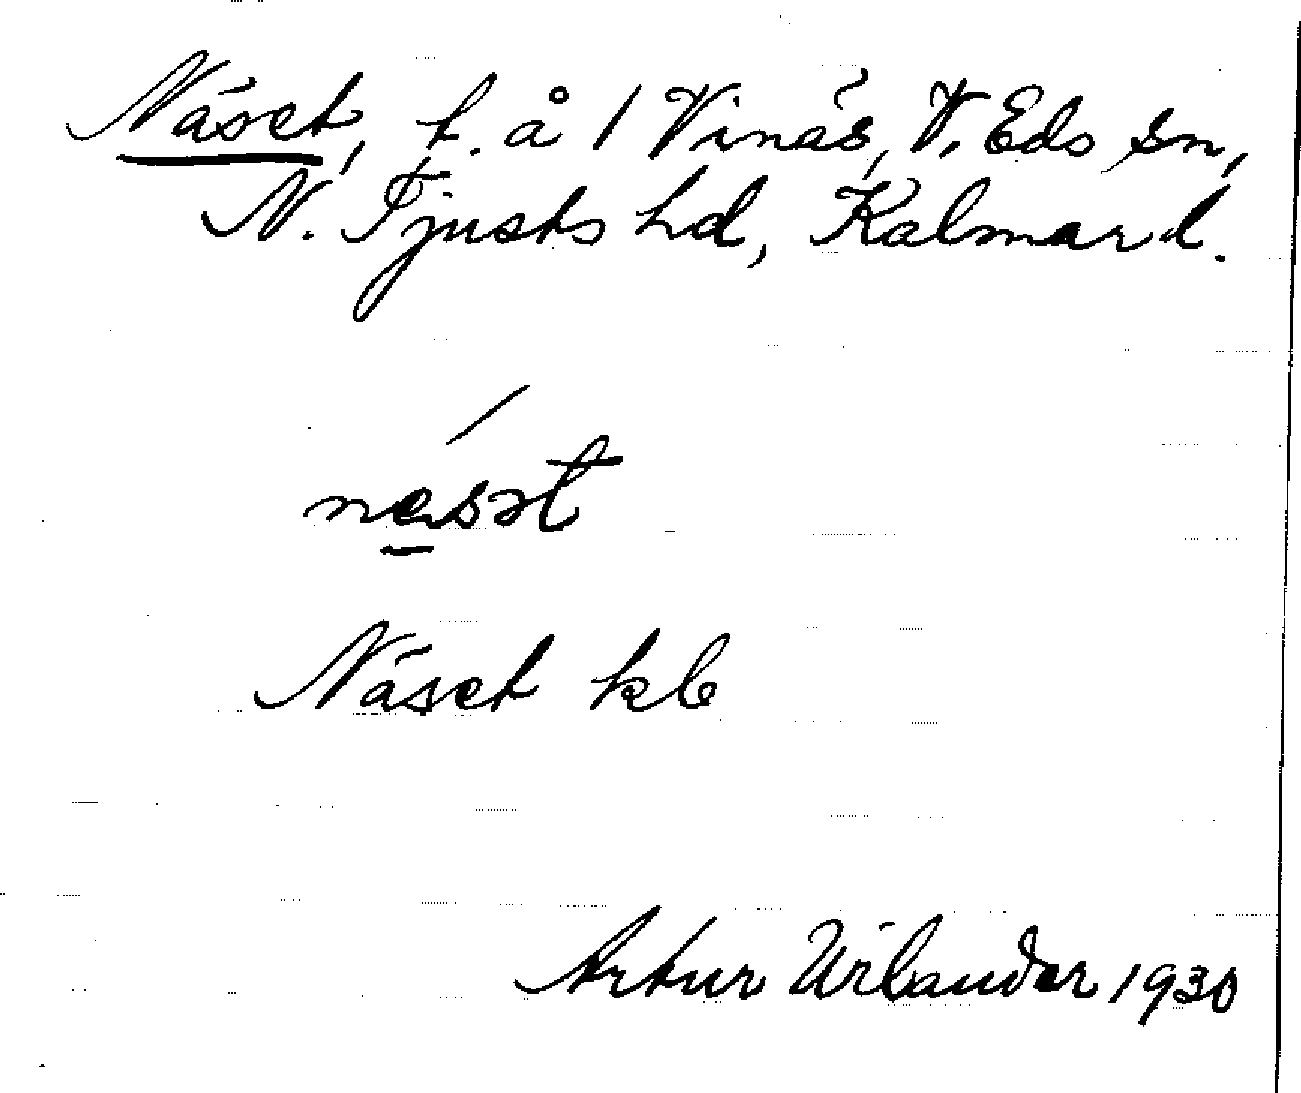 Näset, t. å 1 Vinäs, V. Eds sn,
N. Tjusts hd, Kalmar l.
næsət
Näset kb
Artur Wilander 1930